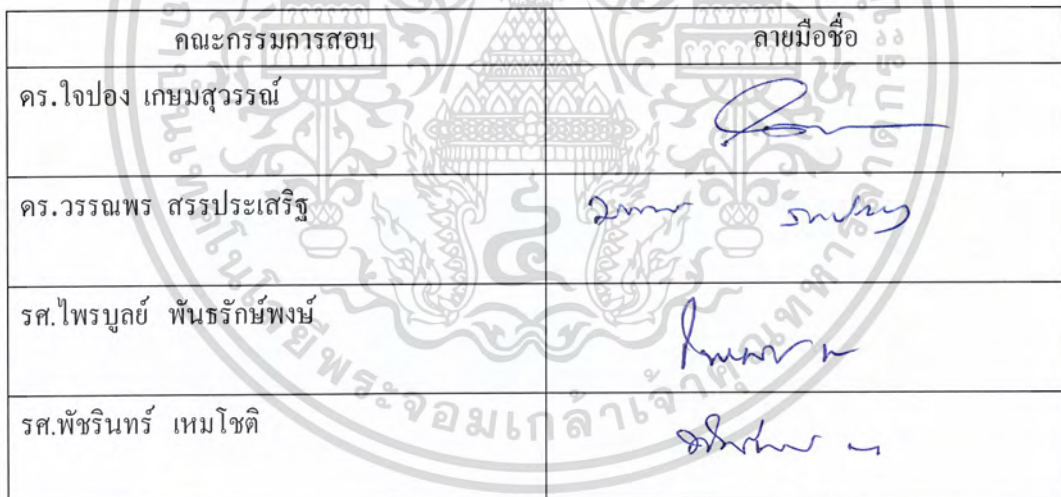 คณะกรรมการสอบ ลายมือชื่อ
ดร.ใจปอง เกษมสุวรรณ์
ดร.วรรณพร สรรประเสริฐ
รศ.ไพรบูลย์ พันธรักษ์พงษ์
รศ.พัชรินทร์ เหมโชติ
เทคโนโลยีพระจอมเกล้าเจ้าคุณทหารลาดกระบัง